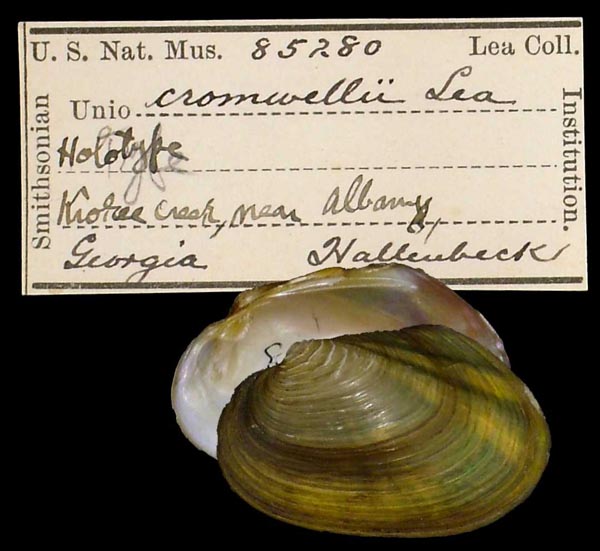 U. S. Nat. Mus. 85280 Lea Coll.
Unio cromwellii Lea
Holotype
Creek, near Albany,
Georgia Hallenbeck
Smithsonian
Institution.